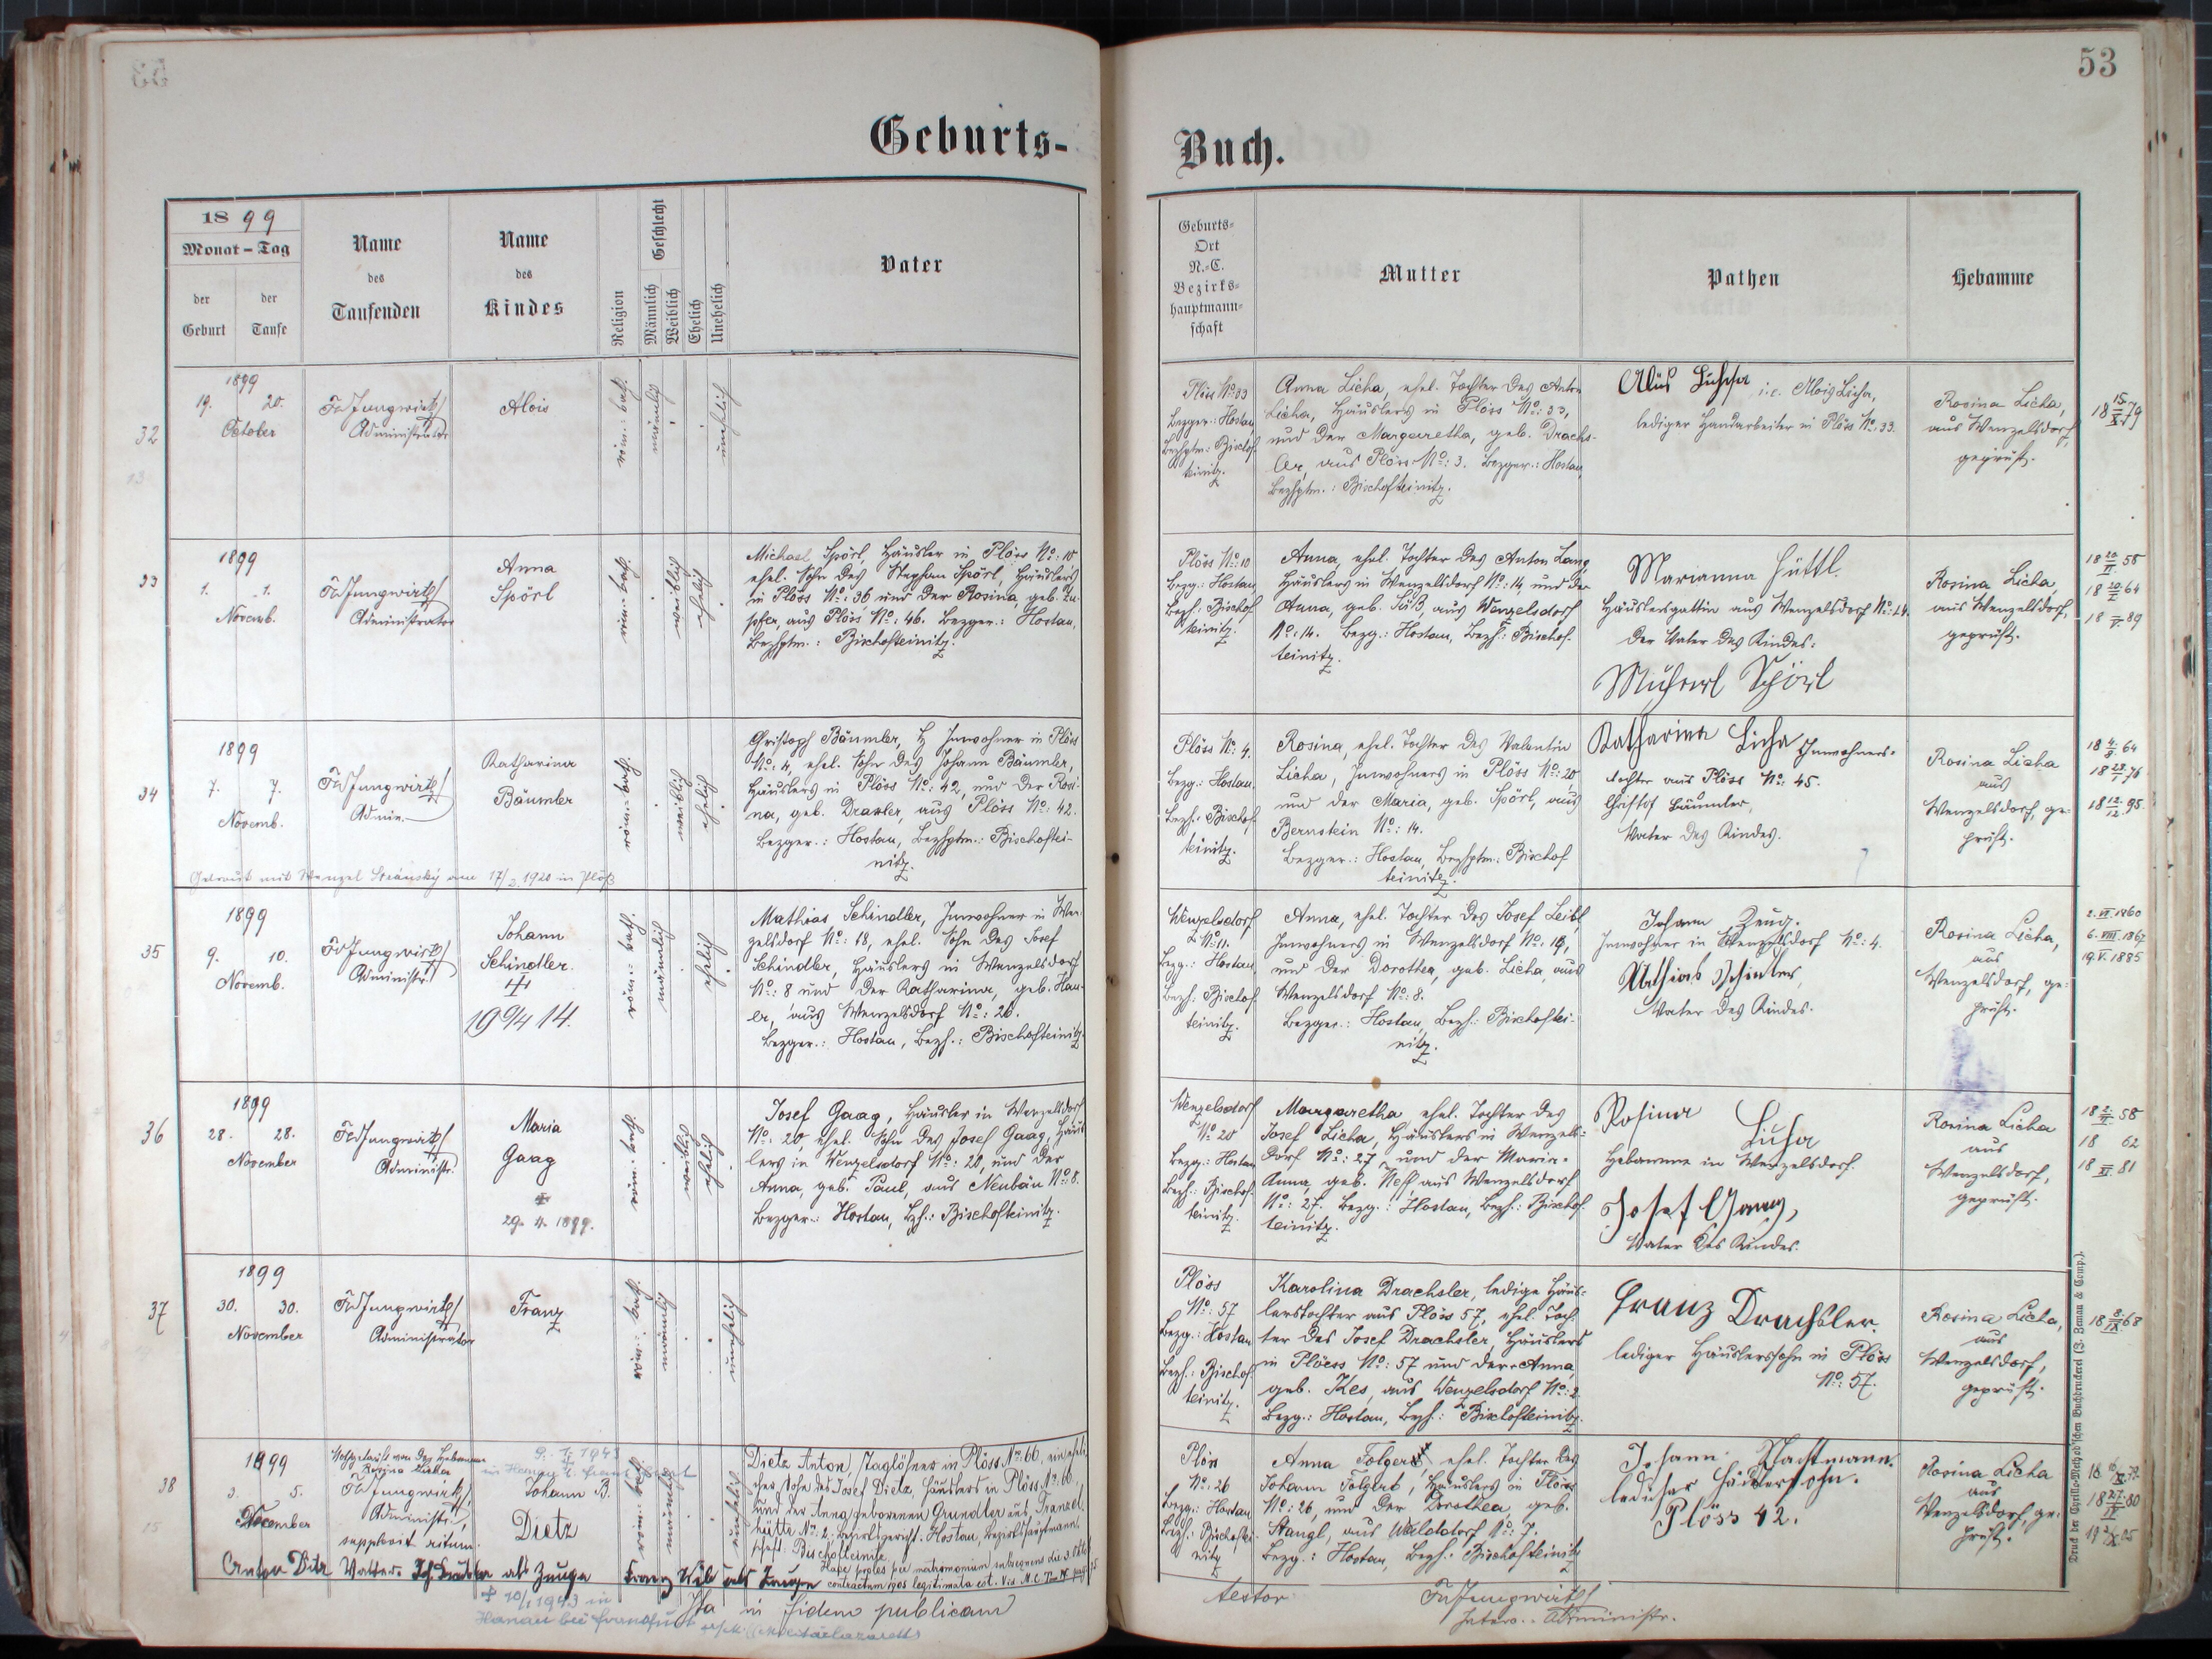 53
Geburts-
Buch.
1899
Monat – Tag
der Geburt
der Taufe
Name des Taufenden
Name des Kindes
Religion
Geschlecht
Männlich
Weiblich
Ehelich
Unehelich
Vater
Geburts-
Ort
N.-C.
Bezirks-
hauptmann-
schaft
Mutter
Pathen
Hebamme
32
1899
19. 20.
October
Fr Jungwirth
Administrator
Alois
röm.: kath.
männlich
unehelich
Plöss No: 33
Bezger.: Hostau,
Bezhptm.: Bischof-
teinitz.
Anna Licha, ehel. Tochter des Anton
Licha, Häuslers in Plöss No: 33,
und der Margaretha, geb. Drachs-
ler, aus Plöss No: 3. Bezger.: Hostau,
Bezhptm.: Bischofteinitz.
i.e. Alois Licha,
lediger Handarbeiter in Plöss No: 33.
Rosina Licha,
aus Wenzelsdorf,
geprüft.
18 15/X 79
33
1899
1. 1.
Novemb.
Fr Jungwirth
Administrator
Anna
Spörl
röm.: kath.
weiblich
ehelich
Michael Spörl, Häusler in Plöss No: 10
ehel. Sohn des Stephan Spörl, Häuslers
in Plöss No: 36 und der Rosina, geb.
aus Plöss No: 46. Bezger.: Hostau,
Bezhptm.: Bischofteinitz.
Plöss No: 10
Bezg.: Hostau,
Bezh.: Bischof-
teinitz.
Anna, ehel. Tochter des Anton Lang,
Häuslers in Wenzelsdorf No: 14, und der
Anna, geb. Süß aus Wenzelsdorf
No: 14. Bezg.: Hostau, Bezh.: Bischof-
teinitz.
Marianna Hüttl.
Häuslersgattin aus Wenzelsdorf No: 24.
Der Vater des Kindes:
Michael Spörl
Rosina Licha,
aus Wenzelsdorf,
geprüft.
34
1899
7. 7.
Novemb.
Fr Jungwirth
Admin.
Katharina
Bäumler
röm.: kath.
weiblich
ehelich
Christoph Bäumler, Inwohner in Plöss
No: 4, ehel. Sohn des Johann Bäumler,
Häuslers in Plöss No: 42, und der Rosi-
na, geb. Draxler, aus Plöss No: 42.
Bezger.: Hostau, Bezhptm.: Bischoftei-
nitz.
Getraut mit Wenzel Stránský am 17/2. 1920 in Plöß
Plöss No: 4.
Bezg.: Hostau,
Bezh.: Bischof-
teinitz.
Rosina, ehel. Tochter des Valentin
Licha, Inwohners in Plöss No: 20,
und der Maria, geb. Spörl, aus
Bernstein No: 14.
Bezger.: Hostau, Bezhptm.: Bischof-
teinitz.
Katharina Licha Inwohners-
tochter aus Plöss No: 45.
Christof Bäumler,
Vater des Kindes.
Rosina Licha
aus
Wenzelsdorf, ge-
prüft.
35
1899
9. 10.
Novemb.
Fr Jungwirth
Administr.
Johann
Schindler.
röm.: kath.
männlich
ehelich
Mathias Schindler, Inwohner in Wen-
zelsdorf No: 18, ehel. Sohn des Josef
Schindler, Häuslers in Wenzelsdorf
No: 8 und der Katharina, geb. Hau-
er, aus Wenzelsdorf No: 26.
Bezger.: Hostau, Bezh.: Bischofteinitz.
Wenzelsdorf
No: 11.
Bezg.: Hostau,
Bezh.: Bischof-
teinitz.
Anna, ehel. Tochter des Josef Leibl,
Inwohners in Wenzelsdorf No: 14,
und der Dorothea, geb. Licha, aus
Wenzelsdorf No: 8.
Bezger.: Hostau, Bezh.: Bischoftei-
nitz.
Johann Zeug.
Inwohner in Wenzelsdorf No: 4.
Mathias Schindler,
Vater des Kindes.
Rosina Licha,
aus
Wenzelsdorf, ge-
prüft.
2. VI. 1860
6. VIII. 1867
19. V. 1885
36
1899
28. 28.
November
Fr Jungwirth
Administr.
Maria
Gaag
29. 4. 1899.
röm.: kath.
weiblich
ehelich
Josef Gaag, Häusler in Wenzelsdorf
No: 20, ehel. Sohn des Josef Gaag, Häus-
lers in Wenzelsdorf No: 20, und der
Anna, geb. Paul, aus Neubäu No: 8.
Bezger.: Hostau, Bzh.: Bischofteinitz.
Wenzelsdorf
No 20
Bezg.: Hostau
Bezh.: Bischof-
teinitz.
Margaretha ehel. Tochter des
Josef Licha, Häuslers in Wenzels-
dorf No: 27, und der Maria-
Anna, geb. Neff aus Wenzelsdorf
No: 27. Bezg.: Hostau, Bezh.: Bischof-
teinitz.
Rosina
Licha
Hebamme in Wenzelsdorf.
Josef Gaag,
Vater des Kindes.
Rosina Licha
aus
Wenzelsdorf,
geprüft.
37
1899
30. 30.
November
Fr Jungwirth
Administrator
Franz
röm.: kath.
männlich
unehelich
Plöss
No: 57
Bezg.: Hostau
Bezh.: Bischof-
teinitz.
Karolina Drachsler, ledige Häus-
lerstochter aus Plöss 57, ehel. Toch-
ter des Josef Drachsler, Häuslers
in Plöess No: 57 und der Anna,
geb. Kes, aus Wenzelsdorf No: 2
Bezg.: Hostau, Bezh.: Bischofteinitz.
Franz Drachsler.
lediger Häuslerssohn in Plöss
No: 57.
Rosina Licha,
aus
Wenzelsdorf,
geprüft.
18 8/IX 68
38
1899
3. 5.
December
Nothgetauft von der Hebamme
Rosina Licha
Fr Jungwirth,
Administr.,
supplevit ritum.
Johann B.
Dietz
röm.: kath.
männlich
unehelich
Dietz Anton, Taglöhner in Plöss No. 60, eheli-
cher Sohn des Josef Dietz, Häuslers in Plöss No. 60,
und der Anna geborenen Grundler aus Franzel-
hütte No. 2. Bezirksgericht: Hostau, Bezirkshauptmann-
schaft: Bischofteinitz.
Haec proles per matrimonium subsequens die 3. Okt.
contractum 1905 legitimata est.
Anton Ditz Vatter. als Zeuge Franz als Zeuge
Ita in fidem publicam
+ 10/1 1943 in
Hanau bei Frankfurt
Plöss
No: 26
Bezg.: Hostau
Bezh.: Bischoftei-
nitz
Anna Folgert, ehel. Tochter des
Johann Folgert, Häuslers in Plöss
No: 26, und der Dorothea, geb.
Stangl, aus Walddorf No: 7.
Bezg.: Hostau, Bezh.: Bischofteinitz
Johann
lediger Häuslersohn.
Plöss 42.
Rosina Licha
aus
Wenzelsdorf, ge-
prüft.
testor
Fr Jungwirth
Administr.
Druck der Cyrillo-Method'schen Buchdruckerei (J. Zeman & Comp.).